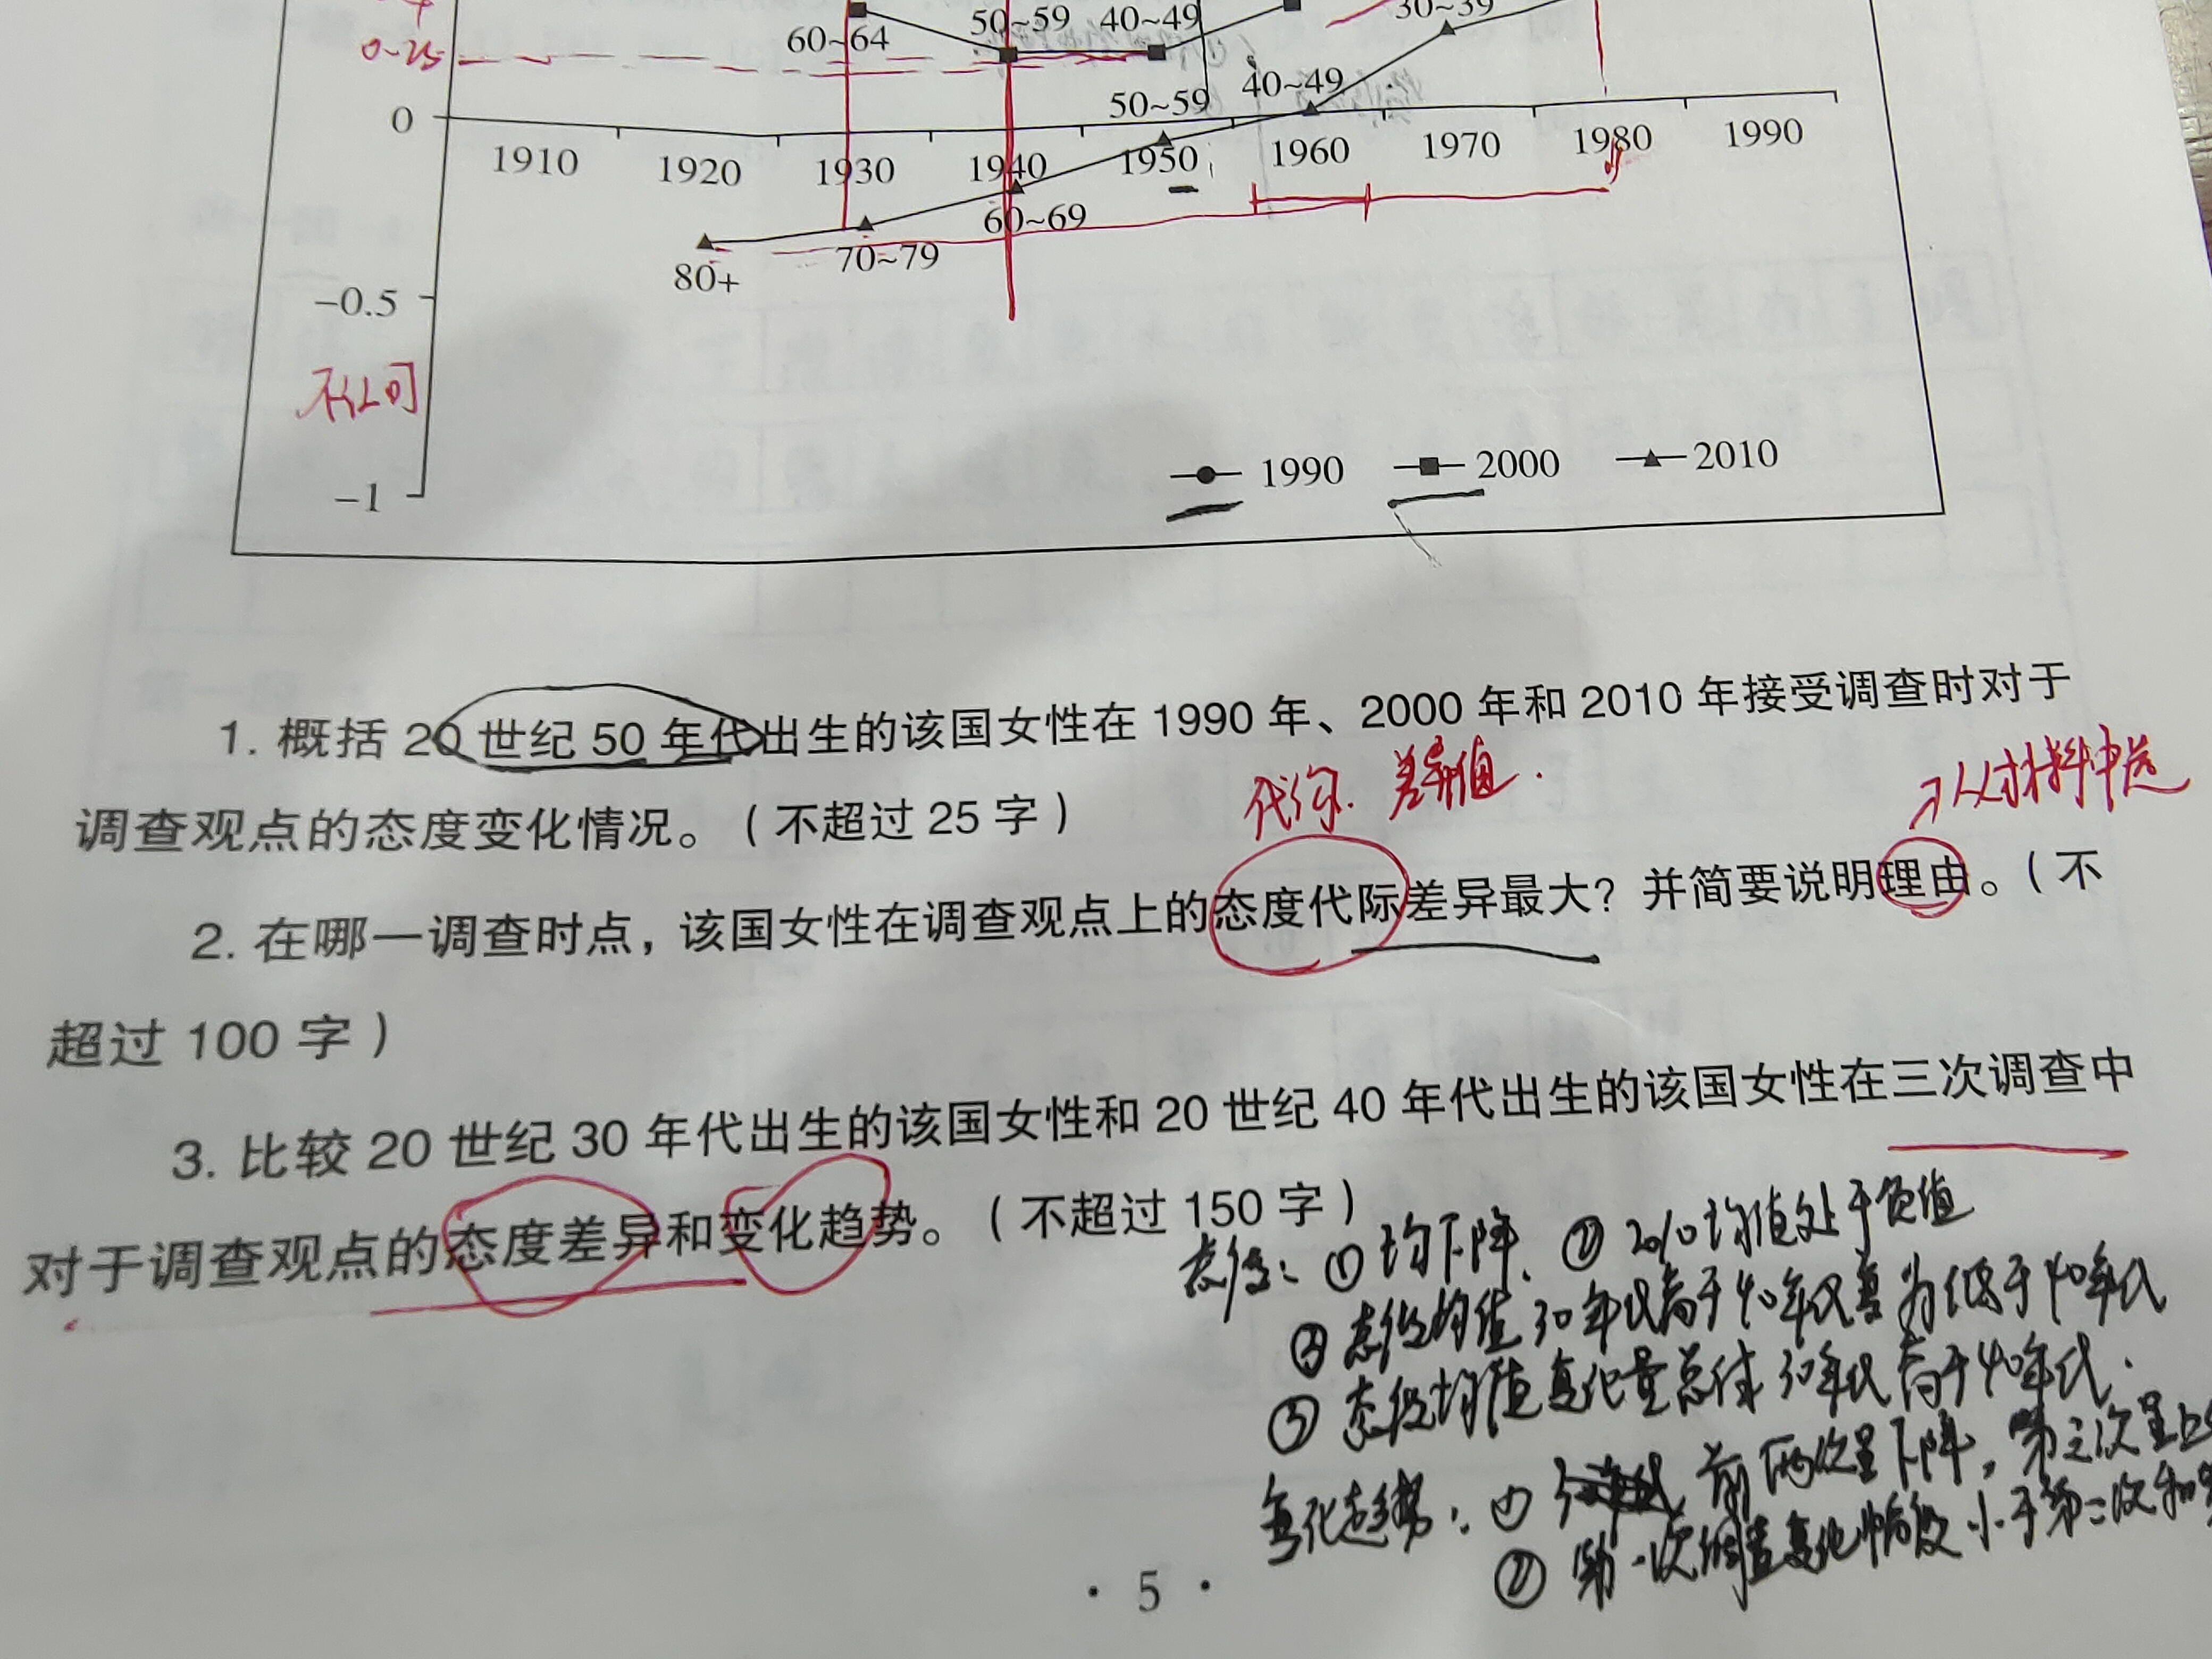 60~64
50~59
40~49
30~39
0~25
0
50~59
40~49
1910
1920
1930
1940
1950
1960
1970
1980
1990
60~69
70~79
80+
-0.5
不认可
-1
1990
2000
2010
1. 概括 20 世纪 50 年代出生的该国女性在 1990 年、2000 年和 2010 年接受调查时对于
调查观点的态度变化情况。（不超过 25 字）
差异值.
从材料中选
2. 在哪一调查时点，该国女性在调查观点上的态度代际差异最大？并简要说明理由。（不
超过 100 字）
3. 比较 20 世纪 30 年代出生的该国女性和 20 世纪 40 年代出生的该国女性在三次调查中
对于调查观点的态度差异和变化趋势。（不超过 150 字）
态度：① 均下降. ② 2010均值处于负值
态度均值 30年代高于40年代 为低于40年代
③ 态度均值变化量总体 30年代高于40年代.
变化趋势：① 前两次呈下降，第三次呈
② 第一次调查变化幅度小于第二次和
· 5 ·